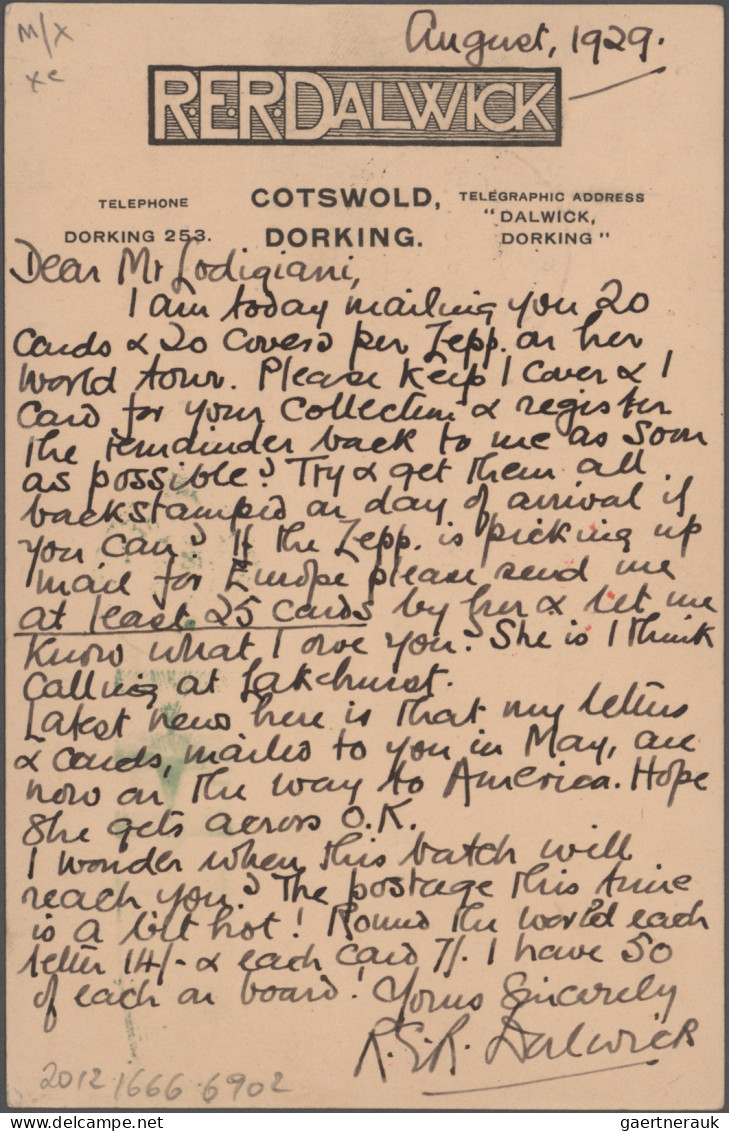 M/X
xc
August, 1929.
R.E.R. DALWICK
TELEPHONE
DORKING 253.
COTSWOLD,
DORKING.
TELEGRAPHIC ADDRESS
"DALWICK,
DORKING"
Dear Mr Lodigiani,
I am today mailing you 20
Cards & 20 Covers per Zepp. on her
World tour. Please keep 1 cover & 1
Card for your Collection & register
the remainder back to me as soon
as possible? Try & get them all
backstamped on day of arrival if
you can? If the Zepp. is picking up
mail for Europe please send me
at least 25 cards by her & let me
know what I owe you? She is I think
Calling at Lakehurst.
Latest news here is that my letters
& cards, mailed to you in May, are
now on the way to America. Hope
she gets across O.K.
I wonder when this batch will
reach you? The postage this time
is a bit hot! Round the world each
letter 14/- & each card 7/. I have 50
of each on board! Yours Sincerely
R.E.R. Dalwick
2012 1666 6902
gaertnerauk